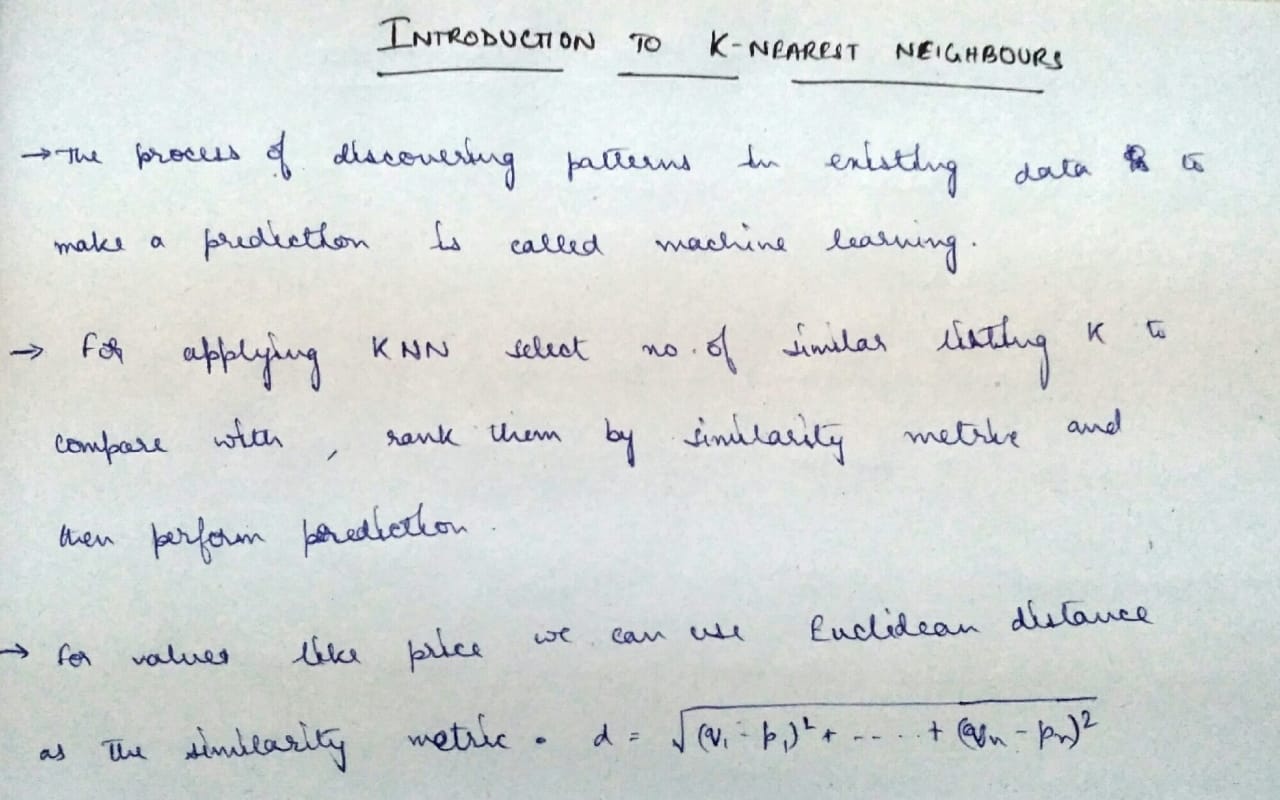 INTRODUCTION TO K-NEAREST NEIGHBOURS
→ The process of discovering patterns in existing data to
make a prediction is called machine learning.
→ For applying KNN select no. of similar listing K to
compare with , rank them by similarity metric and
then perform prediction.
→ for values like price we can use Euclidean distance
as the similarity metric. d = √(q₁ - p₁)² + ----- + (qₙ - pₙ)²